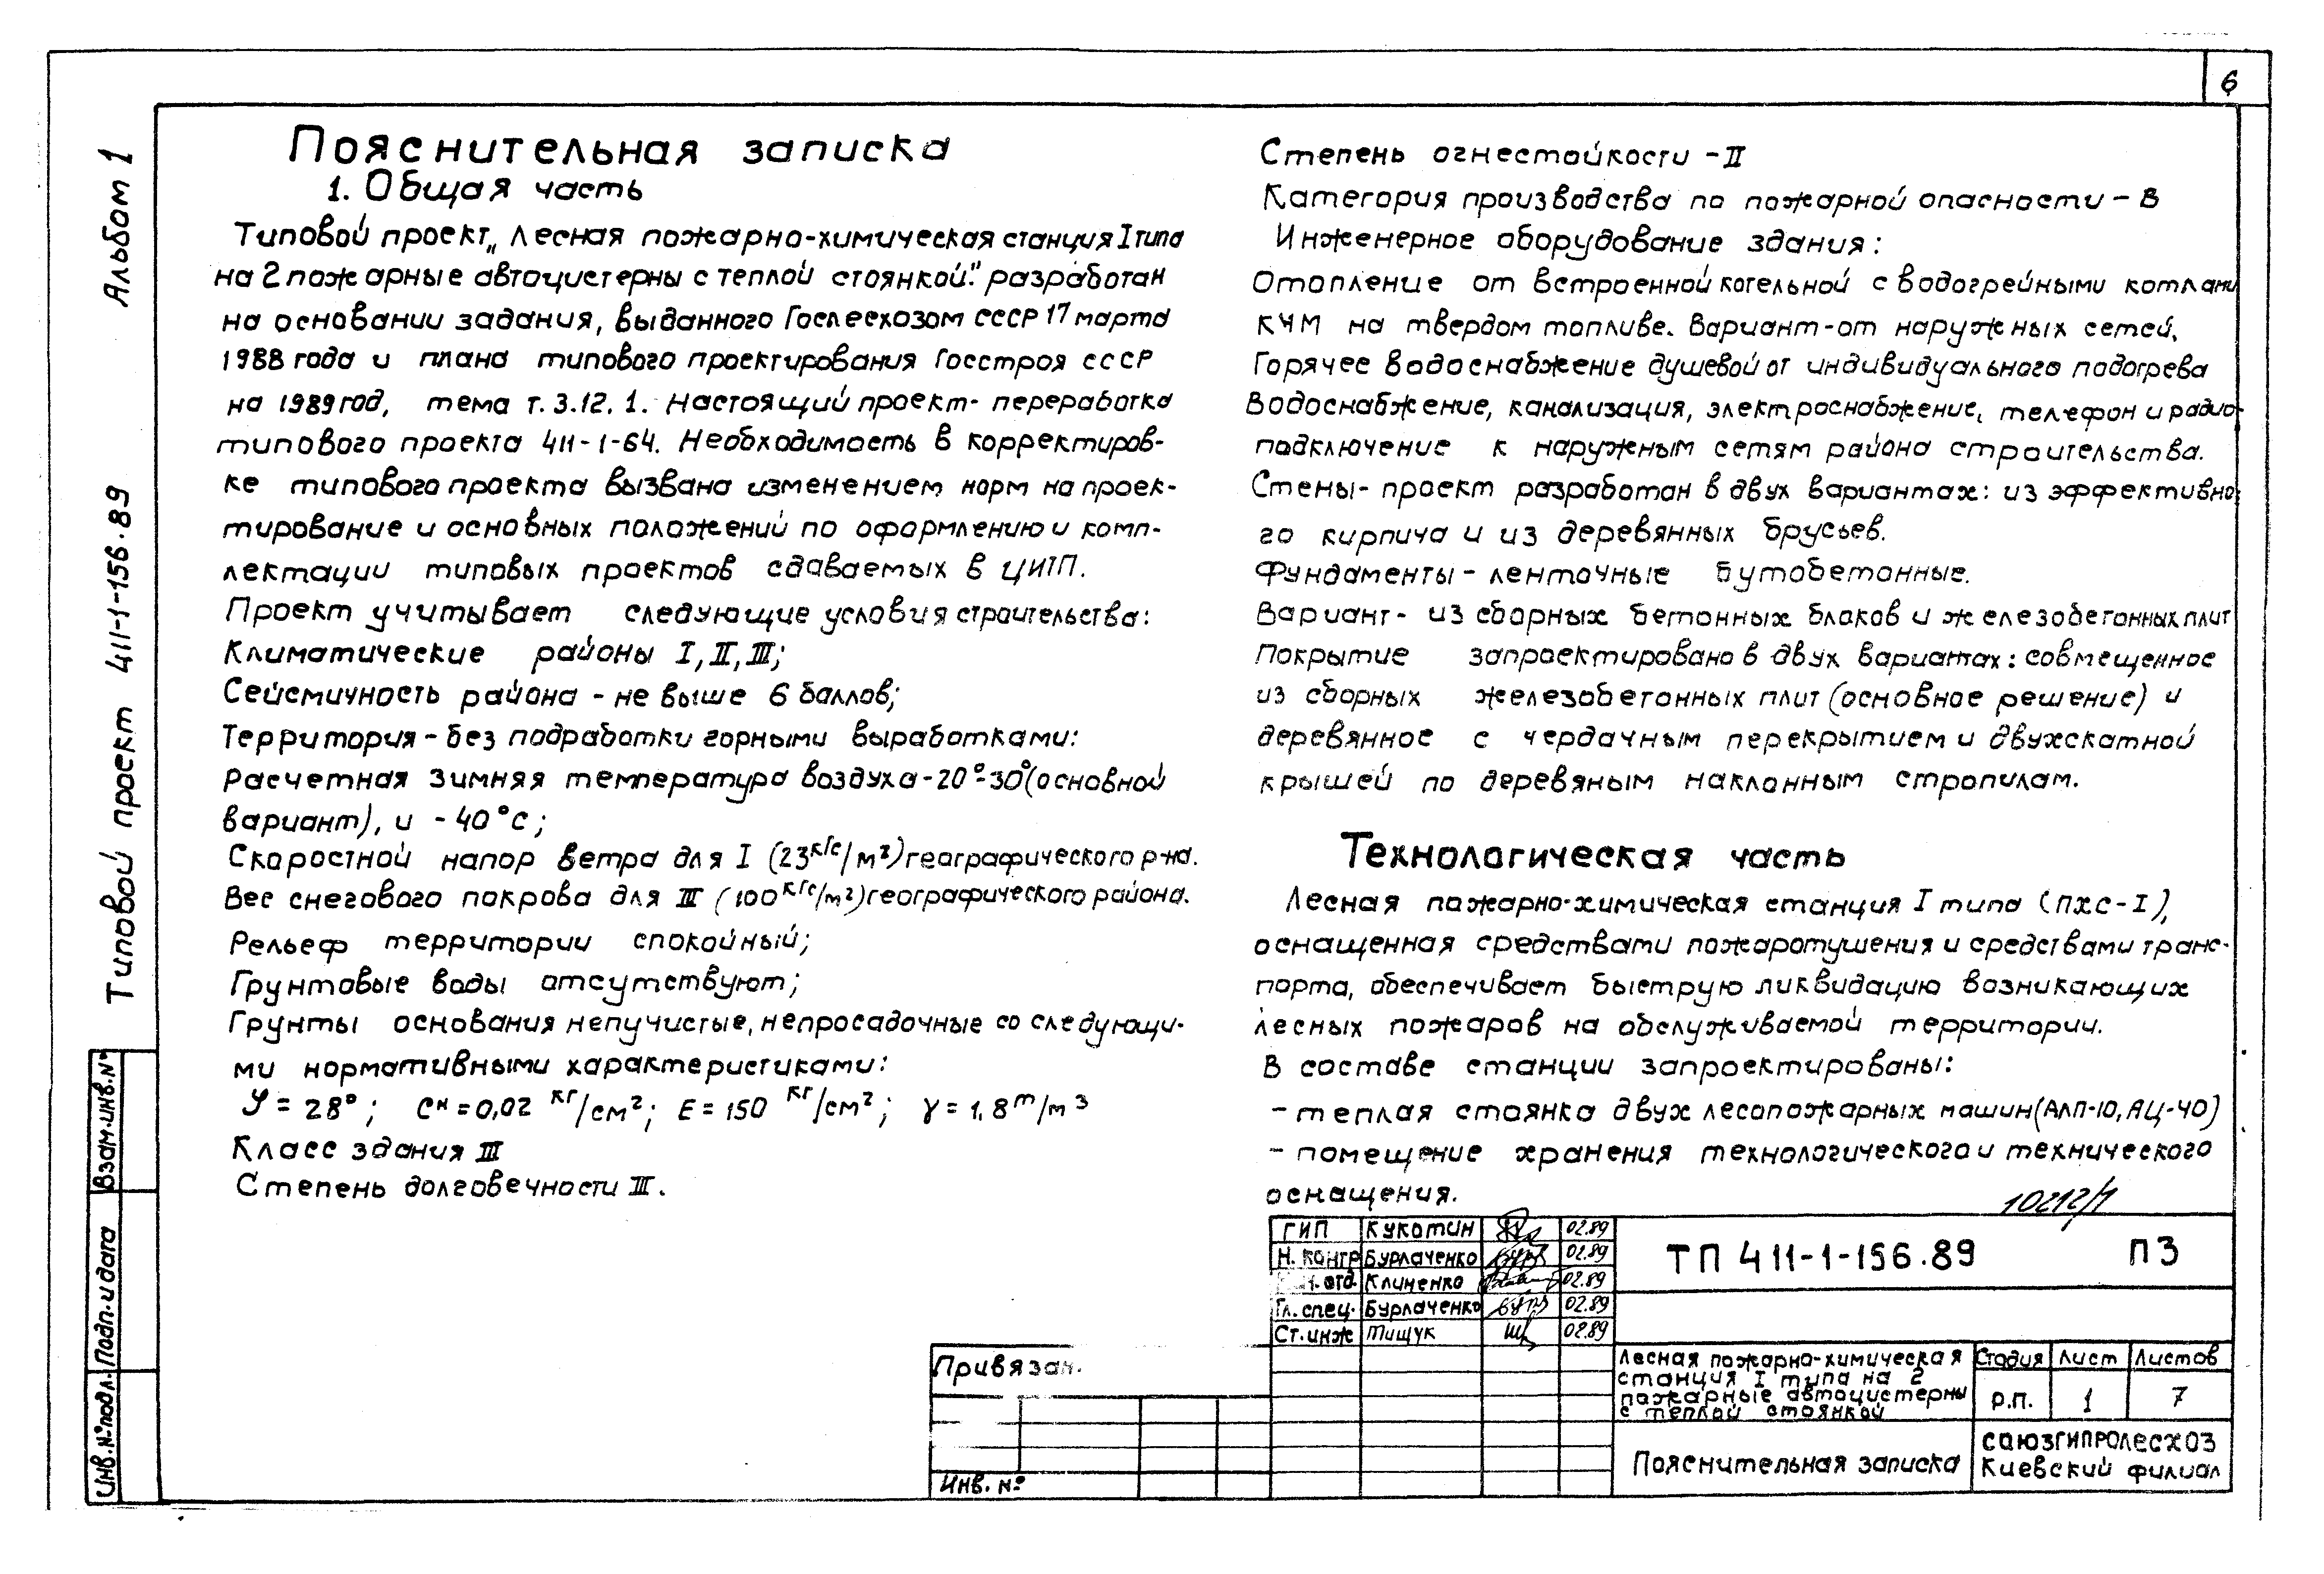 6
Альбом 1
Типовой проект 411-1-156.89
Пояснительная записка
1. Общая часть
Типовой проект „Лесная пожарно-химическая станция I типа
на 2 пожарные автоцистерны с теплой стоянкой." разработан
на основании задания, выданного Гослесхозом СССР 17 марта
1988 года и плана типового проектирования Госстроя СССР
на 1989 год, тема т. 3.12. 1. Настоящий проект- переработка
типового проекта 411-1-64. Необходимость в корректиров-
ке типового проекта вызвана изменением норм на проек-
тирование и основных положений по оформлению и комп-
лектации типовых проектов сдаваемых в ЦИТП.
Проект учитывает следующие условия строительства:
Климатические районы I, II, III;
Сейсмичность района - не выше 6 баллов;
Территория - без подработки горными выработками:
Расчетная зимняя температура воздуха -20°-30° (основной
вариант), и -40°С;
Скоростной напор ветра для I (23 кгс/м²) географического р-на.
Вес снегового покрова для III (100 кгс/м²) географического района.
Рельеф территории спокойный;
Грунтовые воды отсутствуют;
Грунты основания непучистые, непросадочные со следующи-
ми нормативными характеристиками:
𝜑 = 28°; Cн = 0,02 кг/см²; E = 150 кг/см²; γ = 1,8 т/м³
Класс здания III
Степень долговечности III.
Степень огнестойкости - II
Категория производства по пожарной опасности - В
Инженерное оборудование здания:
Отопление от встроенной котельной с водогрейными котлами
КЧМ на твердом топливе. Вариант - от наружных сетей.
Горячее водоснабжение душевой от индивидуального подогрева
Водоснабжение, канализация, электроснабжение, телефон и радио-
подключение к наружным сетям района строительства.
Стены - проект разработан в двух вариантах: из эффективно-
го кирпича и из деревянных брусьев.
Фундаменты - ленточные бутобетонные.
Вариант - из сборных бетонных блоков и железобетонных плит
Покрытие запроектировано в двух вариантах: совмещенное
из сборных железобетонных плит (основное решение) и
деревянное с чердачным перекрытием и двухскатной
крышей по деревяным наклонным стропилам.
Технологическая часть
Лесная пожарно-химическая станция I типа (ПХС-I),
оснащенная средствами пожаротушения и средствами транс-
порта, обеспечивает быструю ликвидацию возникающих
лесных пожаров на обслуживаемой территории.
В составе станции запроектированы:
- теплая стоянка двух лесопожарных машин (АЛП-10, АЦ-40)
- помещение хранения технологического и технического
оснащения.
10212/1
ГИП Кукотин 02.89
Н. контр Бурлаченко 02.89
отд. Клименко 02.89
Гл. спец. Бурлаченко 02.89
Ст. инж Тищук 02.89
ТП 411-1-156.89 ПЗ
Лесная пожарно-химическая
станция I типа на 2
пожарные автоцистерны
с теплой стоянкой
Стадия Лист Листов
Р.П. 1 7
Пояснительная записка
СОЮЗГИПРОЛЕСХОЗ
Киевский филиал
Привязан.
Инв. №
Взам. инв. №
Подп. и дата
Инв. № подл.